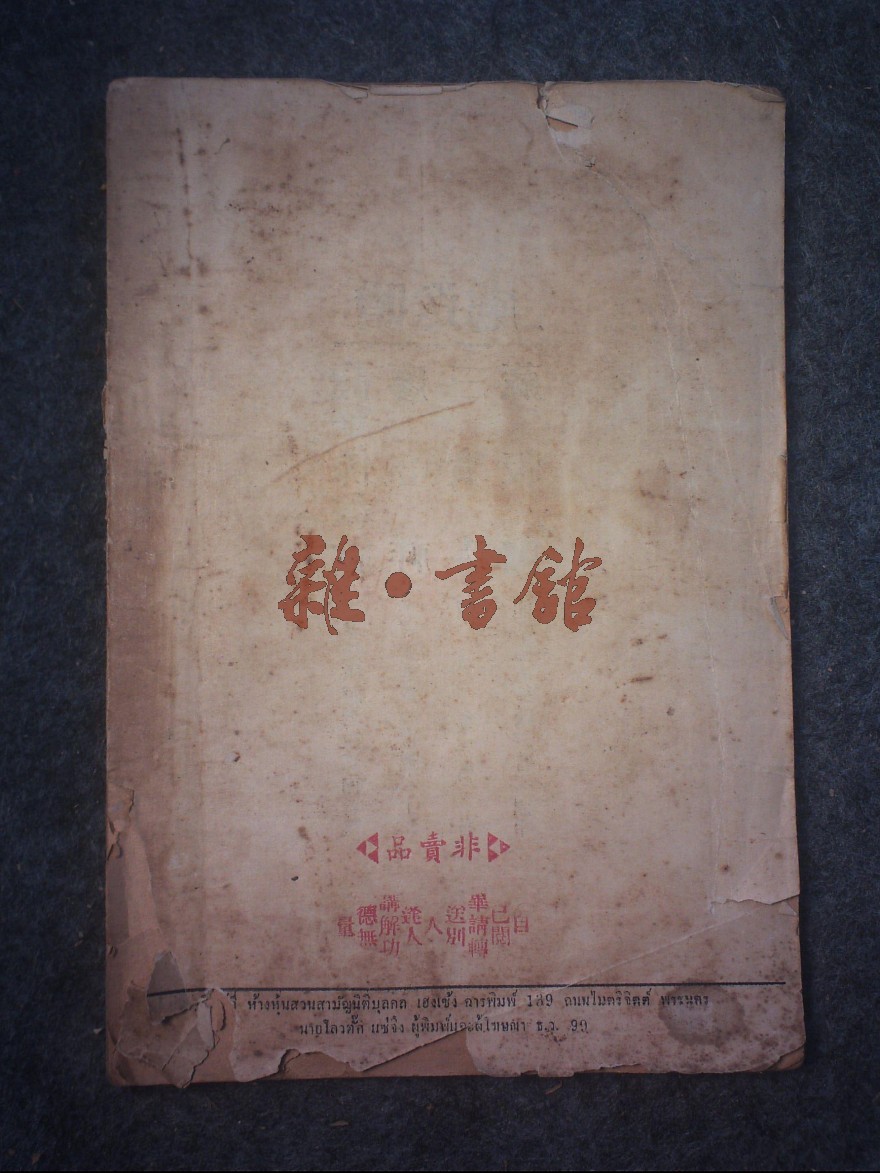 雜·書館
非賣品
自已閱畢請轉送別人、逢人講解功德無量
ที่ ห้างหุ้นส่วนสามัญนิติบุคคล เฮงเซ้ง การพิมพ์ 189 ถนนไมตรีจิตต์ พระนคร
แซ่จิง ผู้พิมพ์และผู้โฆษณา